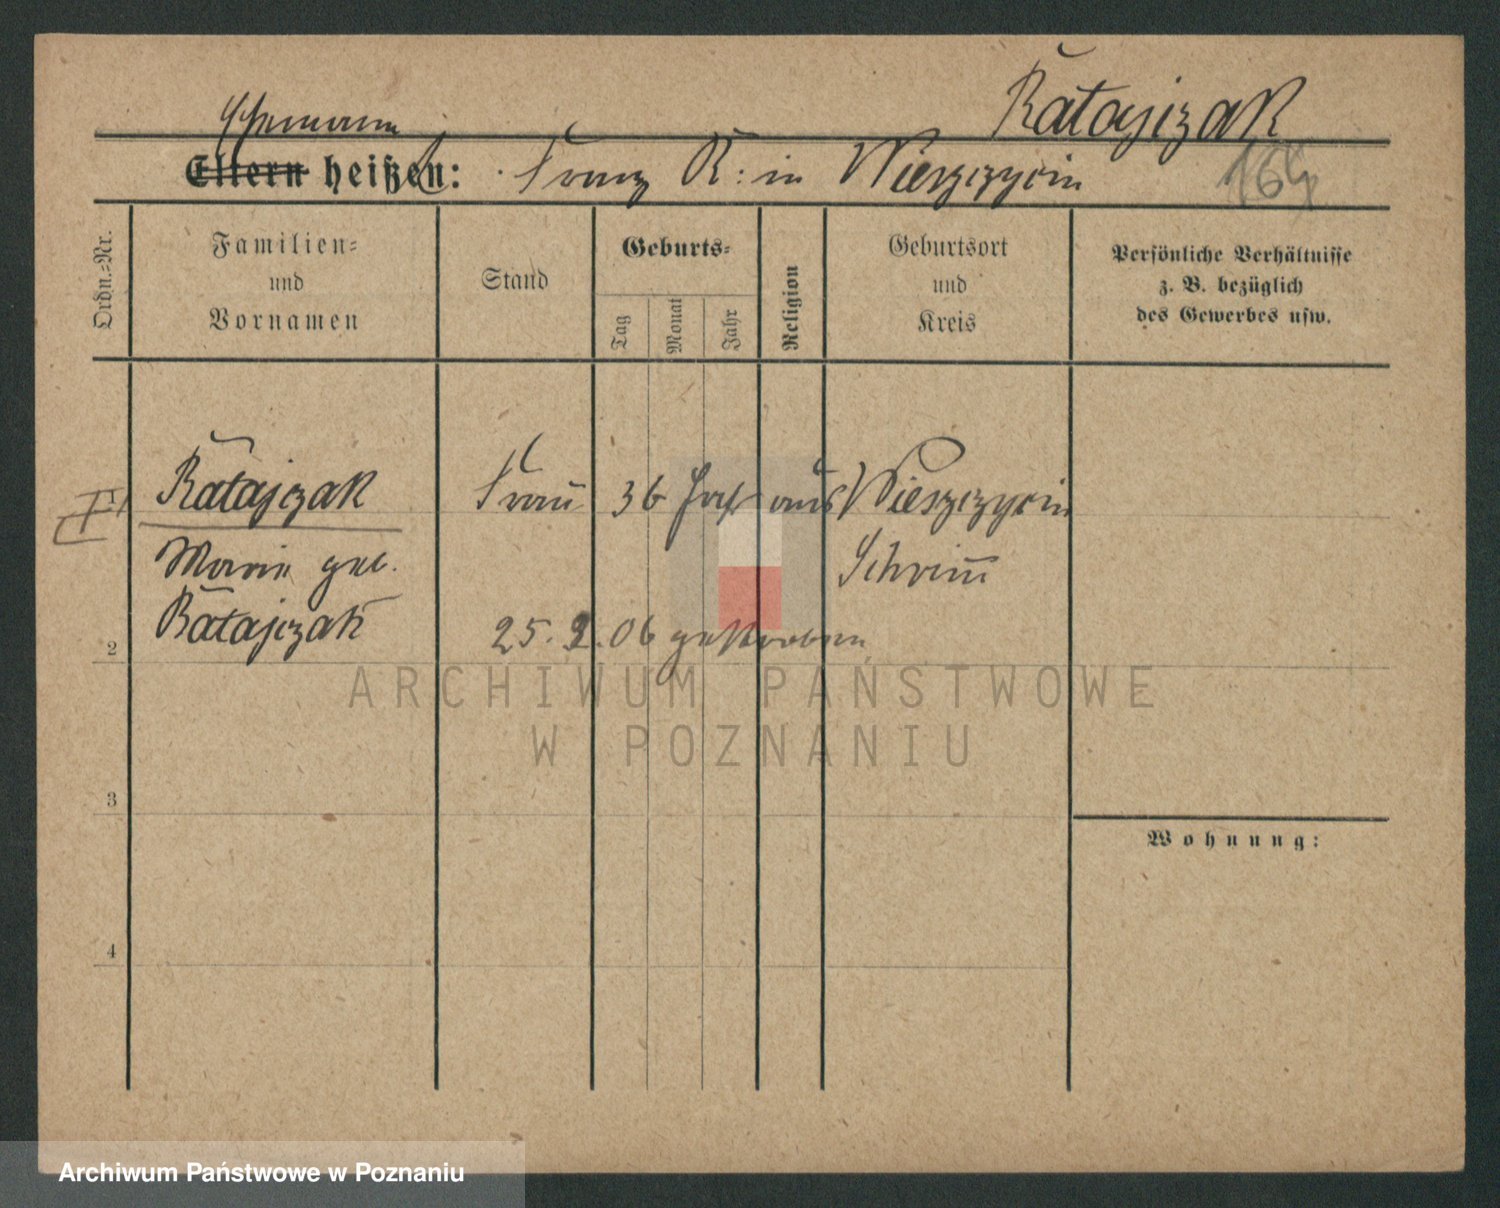 Ratajczak
Ehemann
Eltern heißen: Franz R: in Wieszczyczin
164
Ordn.=Nr.
Familien=
und
Vornamen
Stand
Geburts=
Tag
Monat
Jahr
Religion
Geburtsort
und
Kreis
Persönliche Verhältnisse
z. B. bezüglich
des Gewerbes usw.
1 Ratajczak Frau 36 Jahr aus Wieszczyczin
Marie geb. Schrimm
Ratajczak 25.2.06 gestorben
2
ARCHIWUM PAŃSTWOWE
W POZNANIU
3
Wohnung:
4
Archiwum Państwowe w Poznaniu